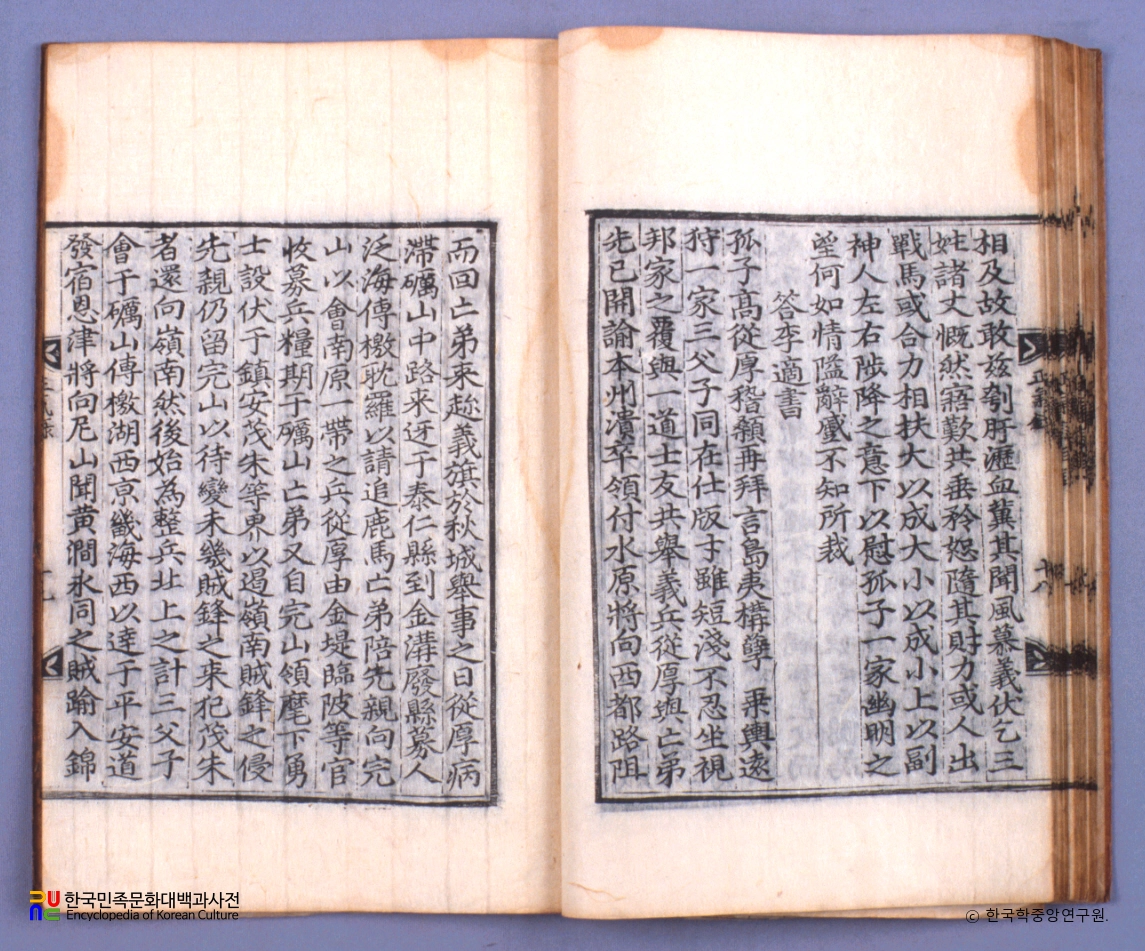 相及故敢玆刳肝瀝血冀其聞風慕義伏乞三
姓諸丈慨然寤歎共垂矜恕隨其財力或人出
戰馬或合力相扶大以成大小以成小上以副
神人左右陟降之意下以慰孤子一家幽明之
望何如情隘辭蹙不知所裁
答李適書
孤子高從厚稽顙再拜言島夷構孼乘輿遠
狩一家三父子同在仕版才雖短淺不忍坐視
邦家之覆與一道士友共擧義兵從厚與亡弟
先已開諭本州潰卒領付水原將向西都路阻
而回亡弟來趂義旗於秋城擧事之日從厚病
滯礪山中路来迓于泰仁縣到金溝廢縣募人
泛海傳檄耽羅以請追鹿馬亡弟陪先親向完
山以會南原一帶之兵從厚由金堤臨陂等官
收募兵糧期于礪山亡弟又自完山領麾下勇
士設伏于鎭安茂朱等界以遏嶺南賊鋒之侵
先親仍留完山以待變未幾賊鋒之来犯茂朱
者還向嶺南然後始為整兵北上之計三父子
會于礪山傳檄湖西京畿海西以達于平安道
發宿恩津將向尼山聞黃澗永同之賊踰入錦
한국민족문화대백과사전
Encyclopedia of Korean Culture
© 한국학중앙연구원.